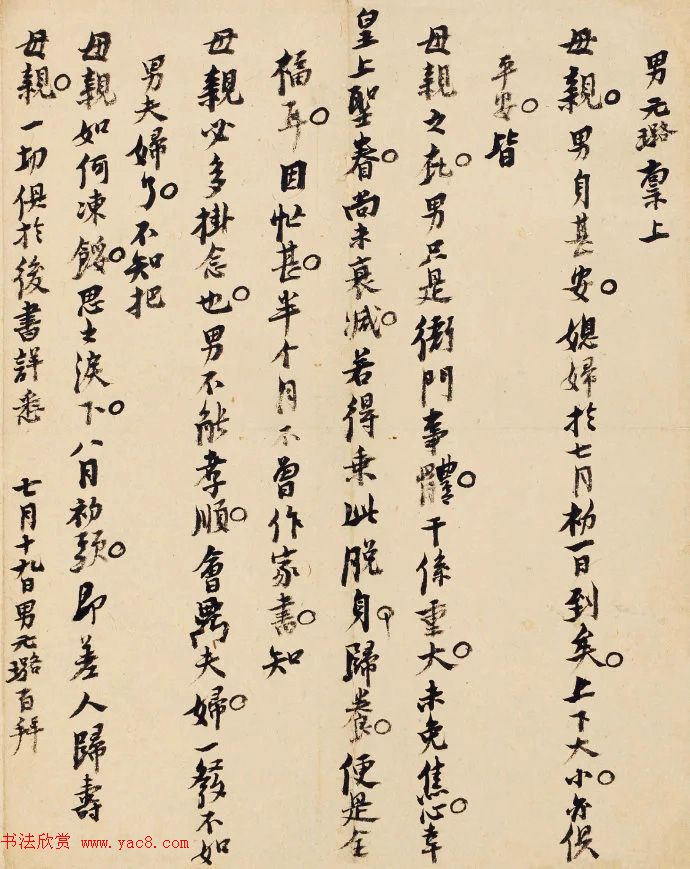 男元璐稟上
母親。男身甚安。媳婦於七月初一日到矣。上下大小。亦俱
平安。皆
母親之庇。男只是衙門事體。干係重大。未免焦心。幸
皇上聖眷。尚未衰減。若得乘此脫身。歸養。便是全
福耳。因忙甚。半个月不曾作家書。知
母親必多掛念也。男不能孝順。會禺夫婦。一發不如
男夫婦了。不知把
母親如何凍餒。思之淚下。八月初頭。即差人歸壽
母親。一切俱於後書詳悉 七月十九日男元璐百拜
书法欣赏 www.yac8.com